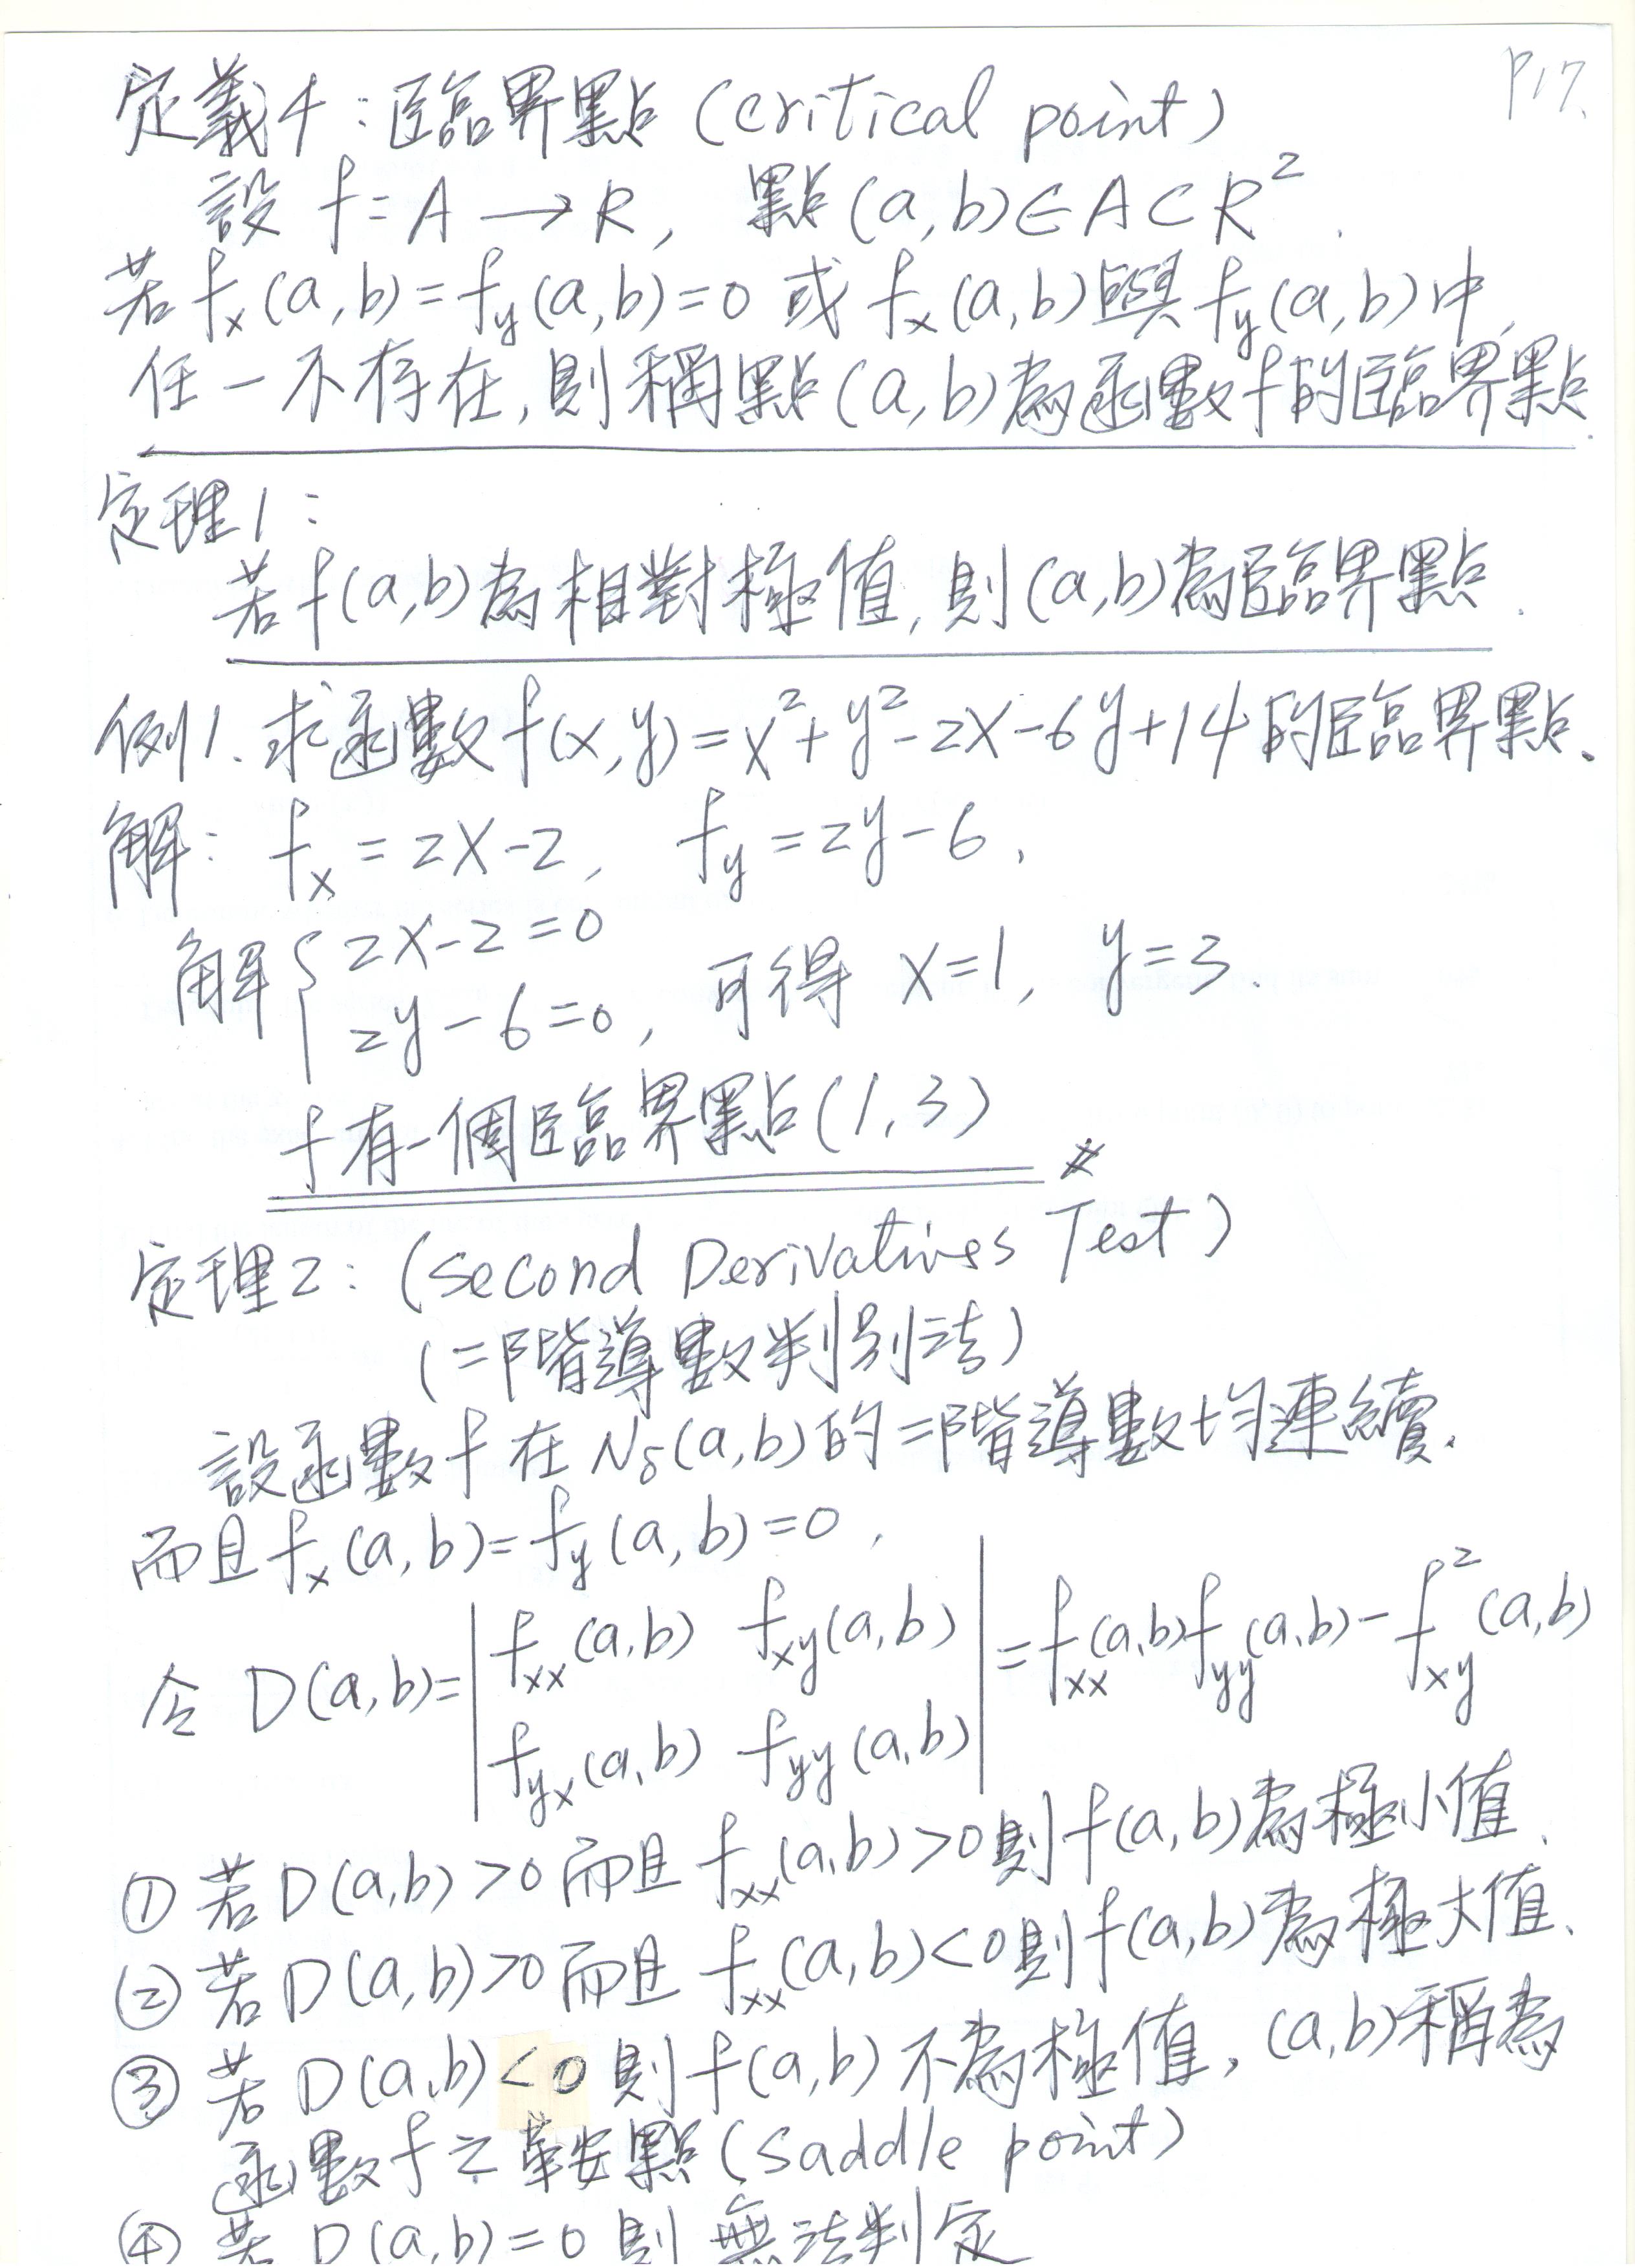 P17.
定義4：臨界點 (critical point)
設 f=A→R, 點(a,b)∈A⊂R².
若 fx(a,b)=fy(a,b)=0 或 fx(a,b)與fy(a,b)中,
任一不存在,則稱點(a,b)為函數f的臨界點.
定理1：
若f(a,b)為相對極值,則(a,b)為臨界點.
例1.求函數f(x,y)=x²+y²-2x-6y+14的臨界點.
解：fx=2x-2, fy=2y-6,
解{2x-2=0
2y-6=0, 可得 x=1, y=3.
f有一個臨界點(1,3)
定理2：(Second Derivatives Test)
(二階導數判別法)
設函數f在Nδ(a,b)的二階導數均連續.
而且fx(a,b)=fy(a,b)=0,
令 D(a,b)=|fxx(a,b) fxy(a,b)|=fxx(a,b)fyy(a,b)-fxy²(a,b)
|fyx(a,b) fyy(a,b)|
① 若D(a,b)>0而且fxx(a,b)>0則f(a,b)為極小值.
② 若D(a,b)>0而且fxx(a,b)<0則f(a,b)為極大值.
③ 若D(a,b)<0則f(a,b)不為極值,(a,b)稱為
函數f之鞍點(saddle point)
④ 若D(a,b)=0則無法判定